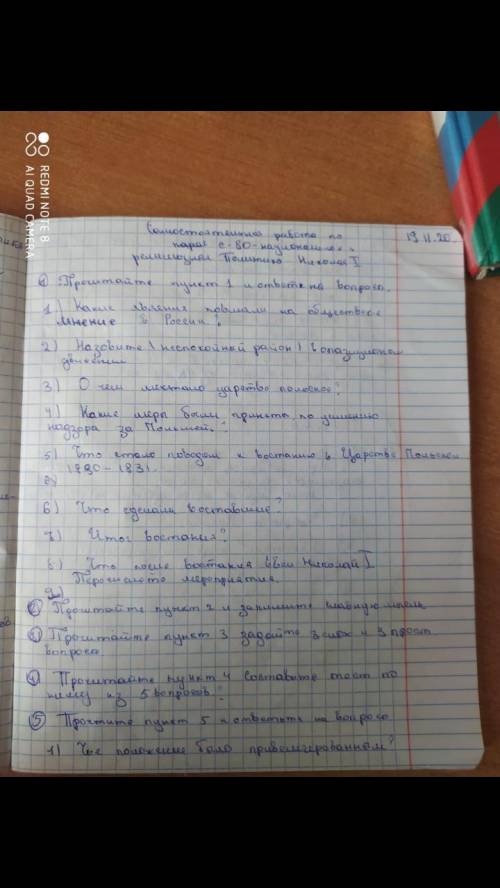 Самостоятельная работа по
параг с-80-национальн.
религиозн Политика Николая I
19.11.20.
① Прочитайте пункт 1 и ответе на вопросы.
1) Какие явления повлияли на обществое
мнение в России?
2) Назовите \ неспокойный район \ в опазиционом
движении
3) О чем мечтало царство полское?
4) Какие меры были приняты по усилению
надзора за Польшей?
5) Что стало поводом к востанию в Царстве Польском
1830-1831.
6) Что сделали воставшие?
7) Итог востания?
8) Что после востания ввёл Николай I
Перечислите мероприятия.
② Прочитайте пункт 2 и запишите главную мысль
③ Прочитайте пункт 3 задайте 3 слож и 3 прост
вопроса
④ Прочитайте пункт 4 составьте тест по
нему из 5 вопросов.
⑤ Прочтите пункт 5 и ответьте на вопросы
1) Чье положение было привелигированном?
REDMI NOTE 8
AI QUAD CAMERA